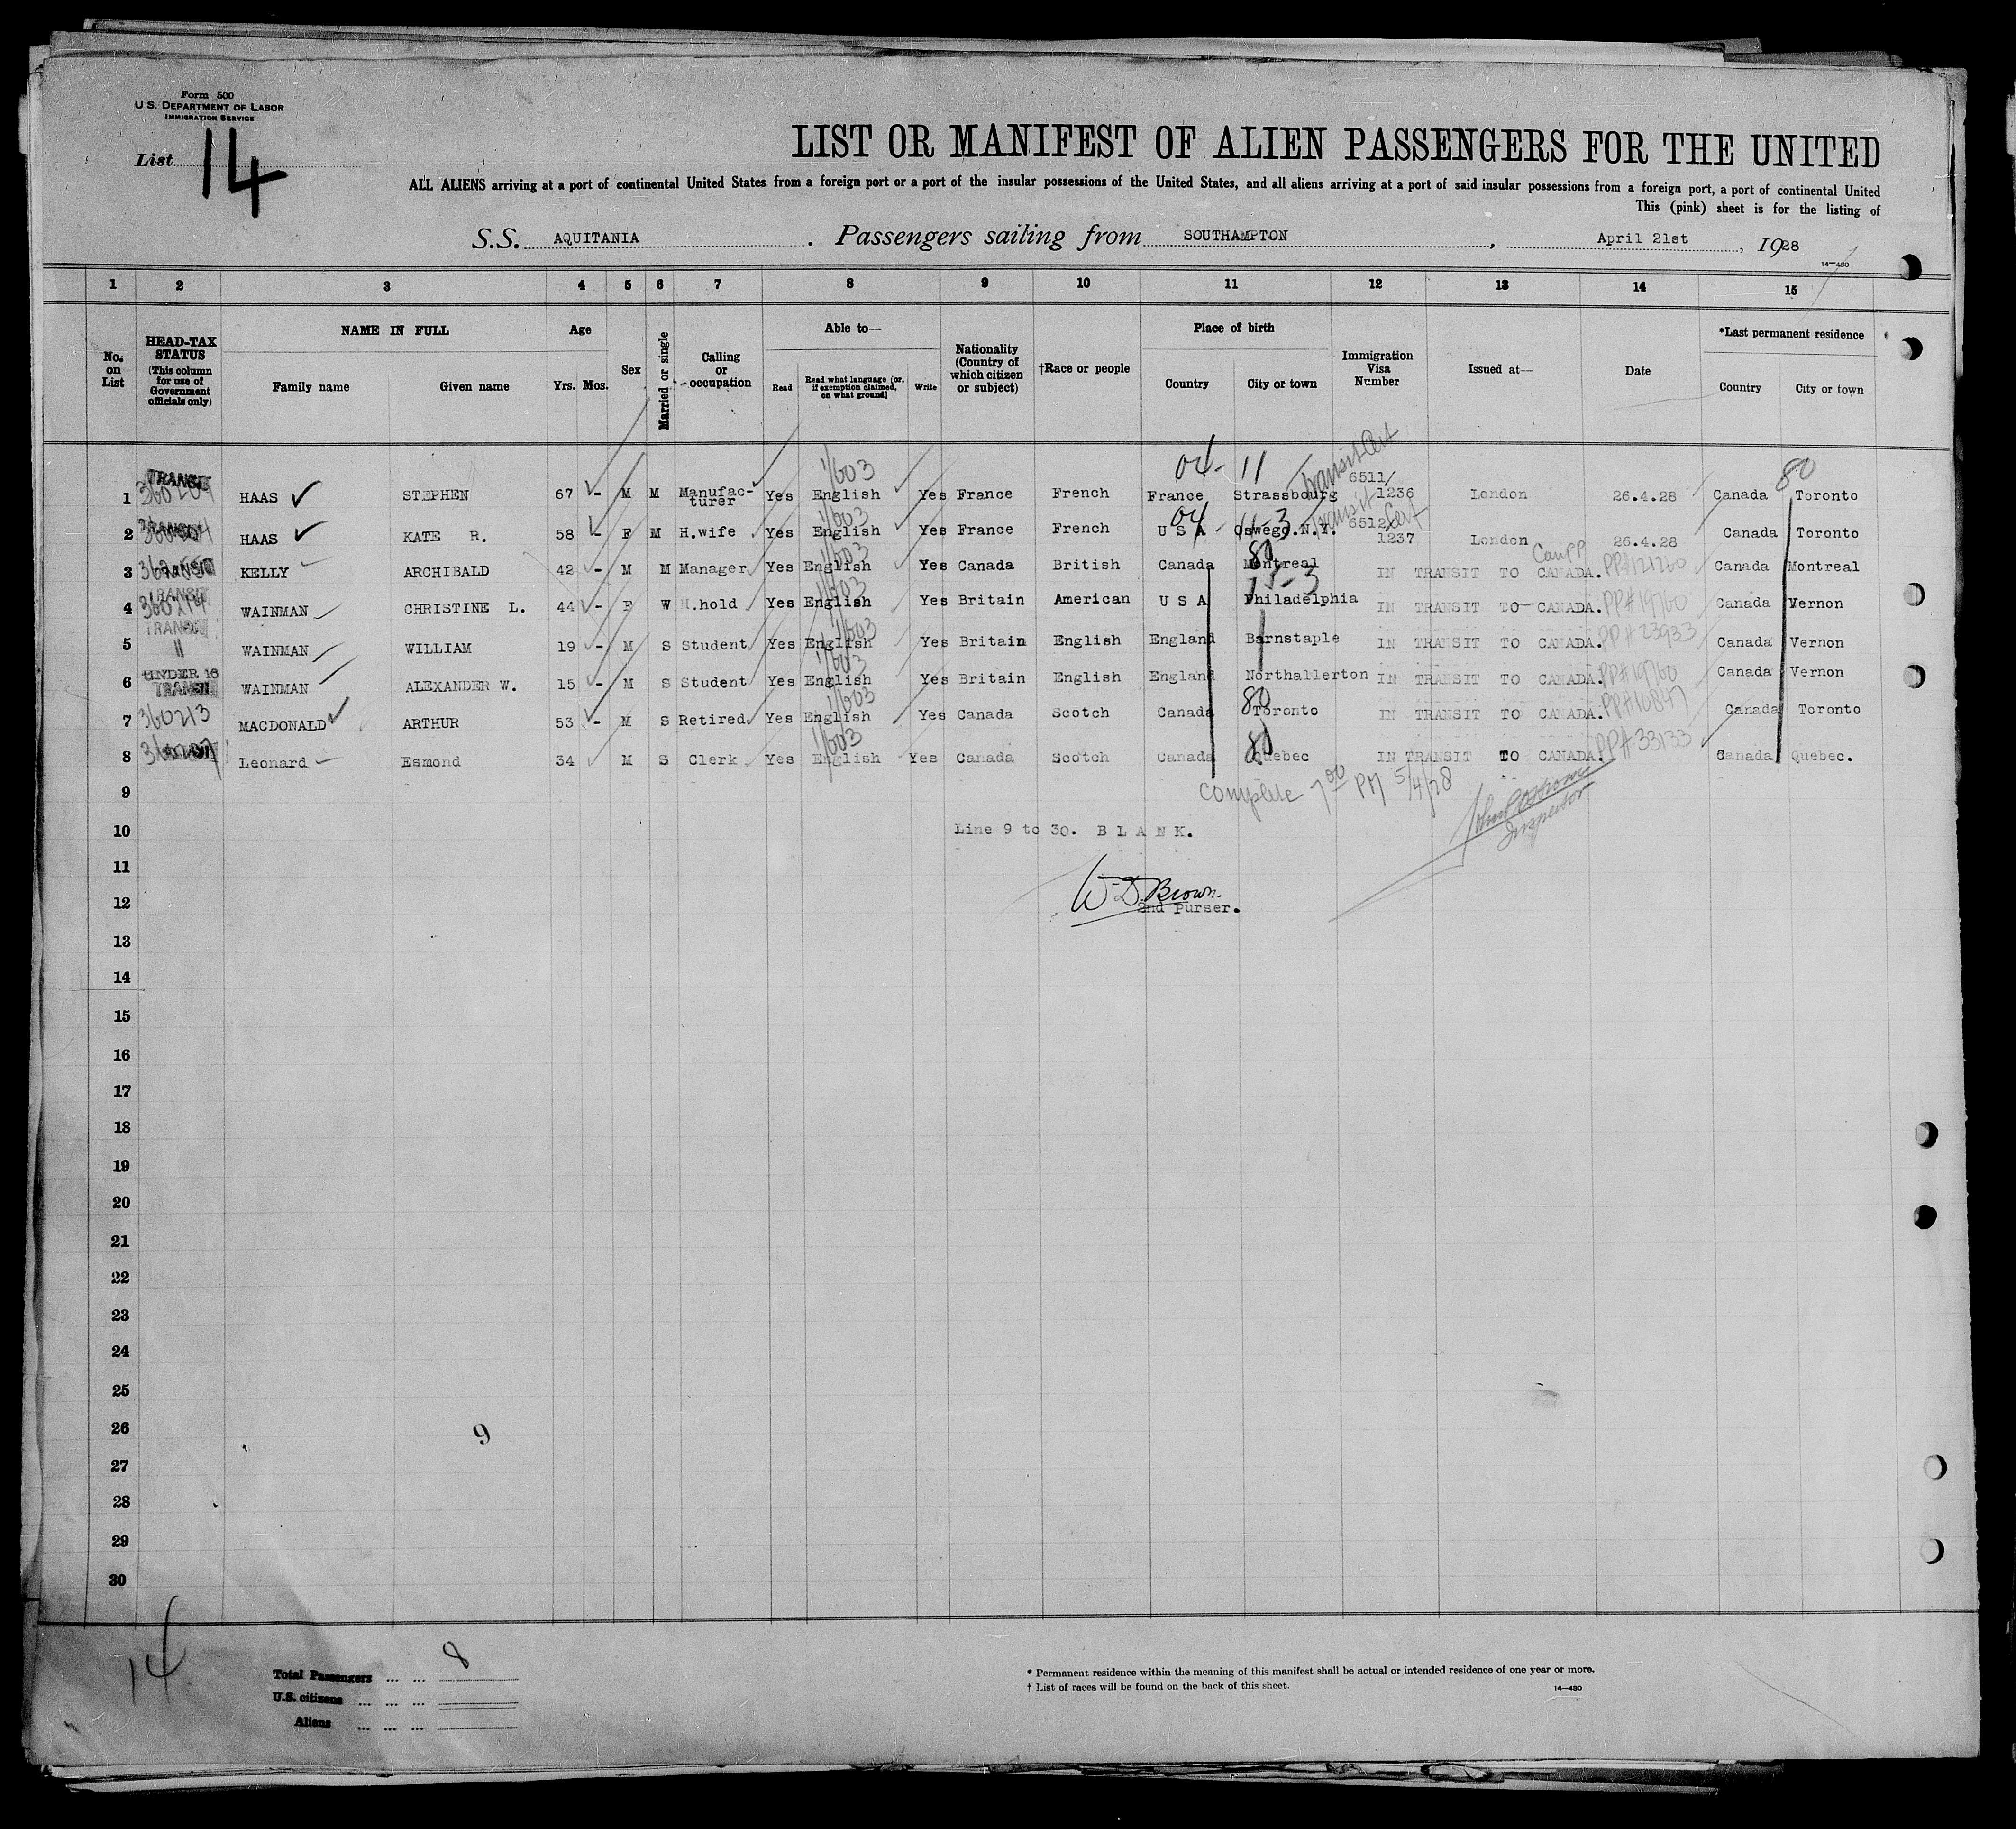 Form 500
U.S. DEPARTMENT OF LABOR
IMMIGRATION SERVICE
List 14
LIST OR MANIFEST OF ALIEN PASSENGERS FOR THE UNITED
ALL ALIENS arriving at a port of continental United States from a foreign port or a port of the insular possessions of the United States, and all aliens arriving at a port of said insular possessions from a foreign port, a port of continental United
This (pink) sheet is for the listing of
S.S. AQUITANIA . Passengers sailing from SOUTHAMPTON , April 21st , 1928
14—480
1 2 3 4 5 6 7 8 9 10 11 12 13 14 15
No. on List
HEAD-TAX STATUS (This column for use of Government officials only)
NAME IN FULL
Family name Given name
Age
Yrs. Mos.
Sex
Married or single
Calling or occupation
Able to—
Read Read what language [or, if exemption claimed, on what ground] Write
Nationality (Country of which citizen or subject)
†Race or people
Place of birth
Country City or town
Immigration Visa Number
Issued at—
Date
*Last permanent residence
Country City or town
04- 11 Transit Cert 80
1 TRANSIT HAAS STEPHEN 67 - M M Manufacturer Yes English 1/603 Yes France French France Strassbourg 6511/1236 London 26.4.28 Canada Toronto
04 - 11-3 Transit Cert
2 HAAS KATE R. 58 - F M H.wife Yes English 1/603 Yes France French U S A Oswego.N.Y. 6512/1237 London 26.4.28 Canada Toronto
3 KELLY ARCHIBALD 42 - M M Manager Yes English 1/603 Yes Canada British Canada Montreal 80 IN TRANSIT TO CANADA. Can PP PP#121260 Canada Montreal
4 TRANSIT WAINMAN CHRISTINE L. 44 - F W H.hold Yes English 1/603 Yes Britain American U S A Philadelphia 15-3 IN TRANSIT TO CANADA. PP#19760 Canada Vernon
5 TRANSIT " WAINMAN WILLIAM 19 - M S Student Yes English 1/603 Yes Britain English England Barnstaple IN TRANSIT TO CANADA. PP#23933 Canada Vernon
6 UNDER 16 TRANSIT WAINMAN ALEXANDER W. 15 - M S Student Yes English 1/603 Yes Britain English England Northallerton IN TRANSIT TO CANADA. PP#19760 Canada Vernon
7 360213 MACDONALD ARTHUR 53 - M S Retired. Yes English 1/603 Yes Canada Scotch Canada Toronto 80 IN TRANSIT TO CANADA. PP#10847 Canada Toronto
8 Leonard Esmond 34 M S Clerk Yes English 1/603 Yes Canada Scotch Canada Quebec 80 IN TRANSIT TO CANADA. PP#33133 Canada Quebec.
9 Complete 7 00 PM 5/4/28
Inspector
10 Line 9 to 30. B L A N K.
11
12 W.D. Brown.
2nd Purser.
13
14
15
16
17
18
19
20
21
22
23
24
25
26 9
27
28
29
30
14
Total Passengers ... ... 8
U.S. citizens ... ... ...
Aliens ... ... ...
* Permanent residence within the meaning of this manifest shall be actual or intended residence of one year or more.
† List of races will be found on the back of this sheet.
14—480